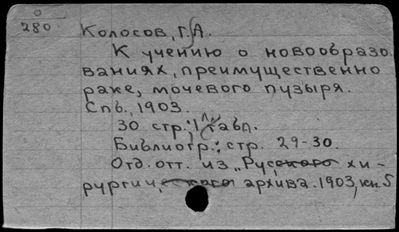 0
280
Колосов, Г.А.
К учению о новообразо
ваниях, преимущественно
раке, мочевого пузыря.
Спб., 1903.
30 стр.; 1 л. табл.
Библиогр.: стр. 29-30.
Отд. отт. из „Русского хи-
рургического архива. 1903, кн. 5